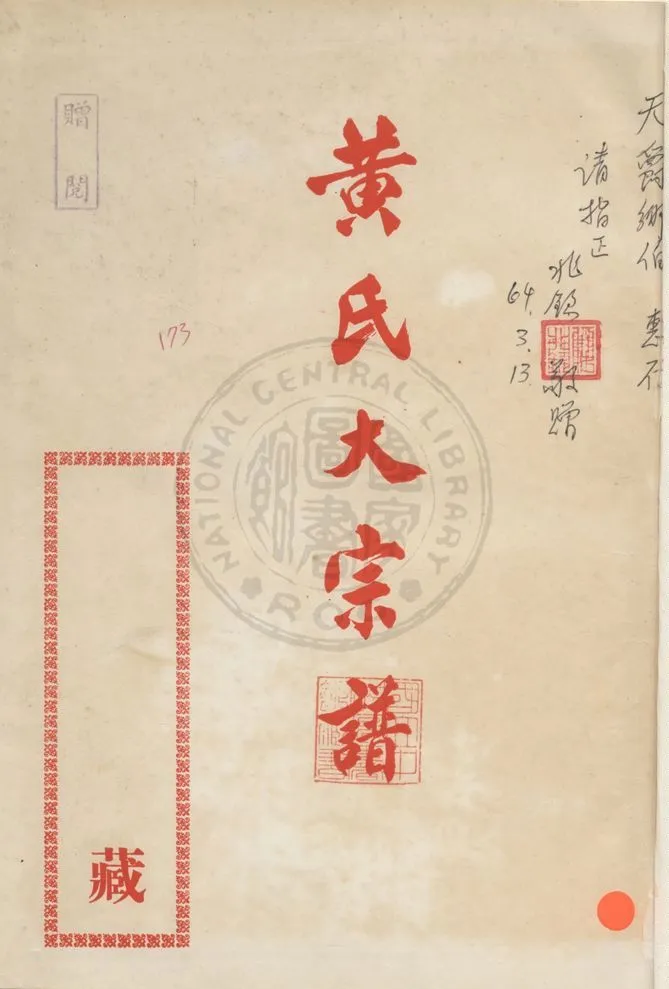 天爵鄉伯 惠存
請指正
敬贈
64.3.13
黃氏大宗譜
贈閱
173
藏
NATIONAL CENTRAL LIBRARY
R.O.C.
國家圖書館